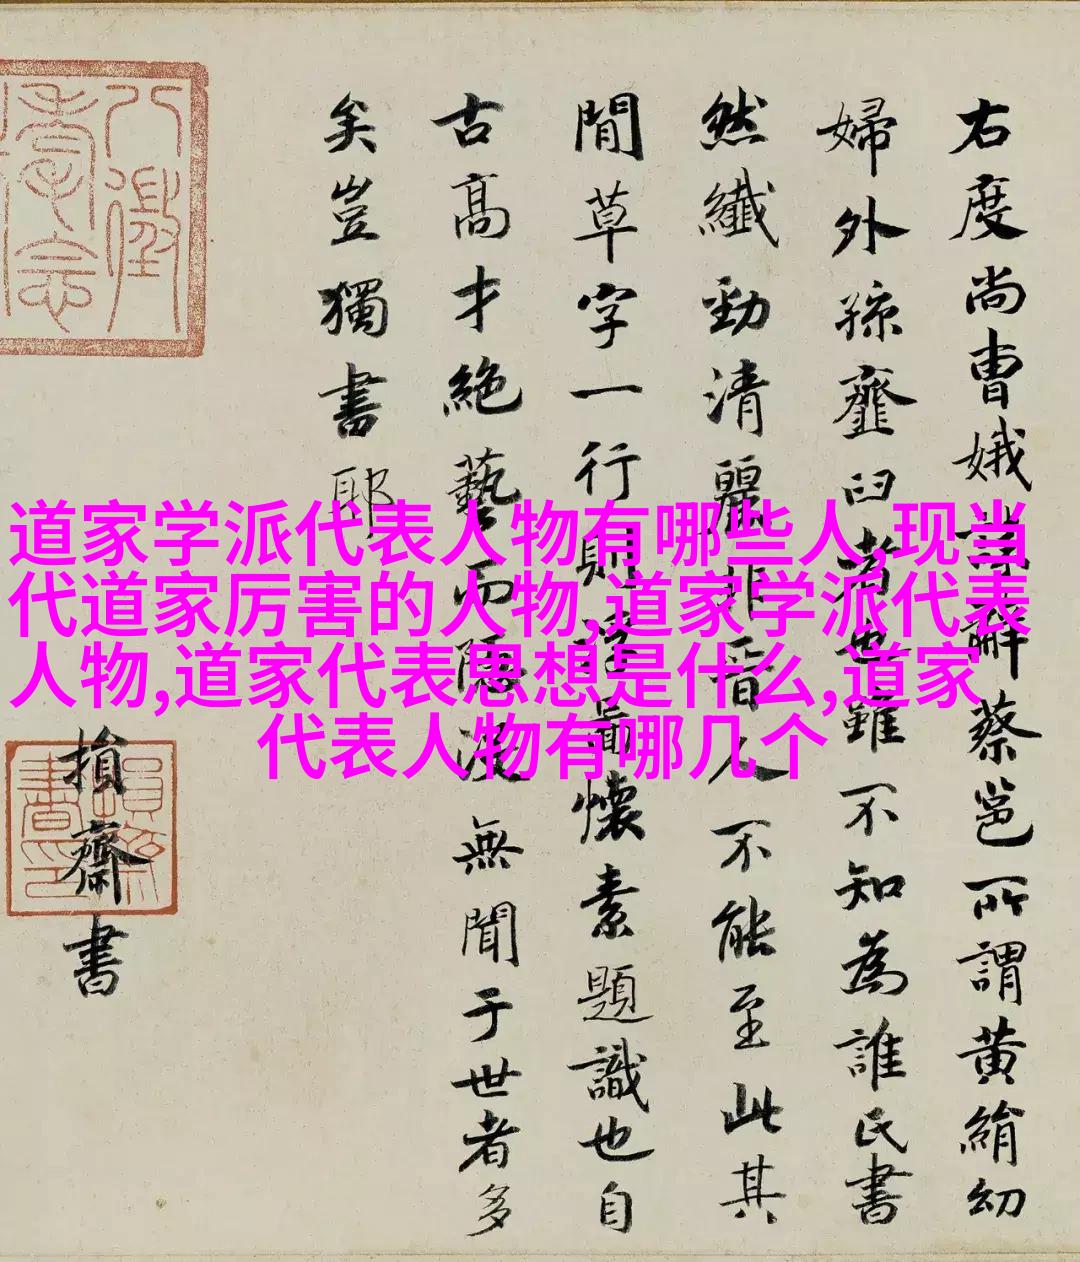 右度尚曹娥誄辭蔡邕所謂黃絹幼
婦外孫齏臼者也雖不知為誰氏書
然纖勁清麗非晉人不能至此其
間草字一行則浮啚懷素題識也自
古高才絕藝而隱沒無聞于世者多
矣豈獨書耶
損齋書
八徵
耄念
道家学派代表人物有哪些人,现当
代道家厉害的人物,道家学派代表
人物,道家代表思想是什么,道家
代表人物有哪几个